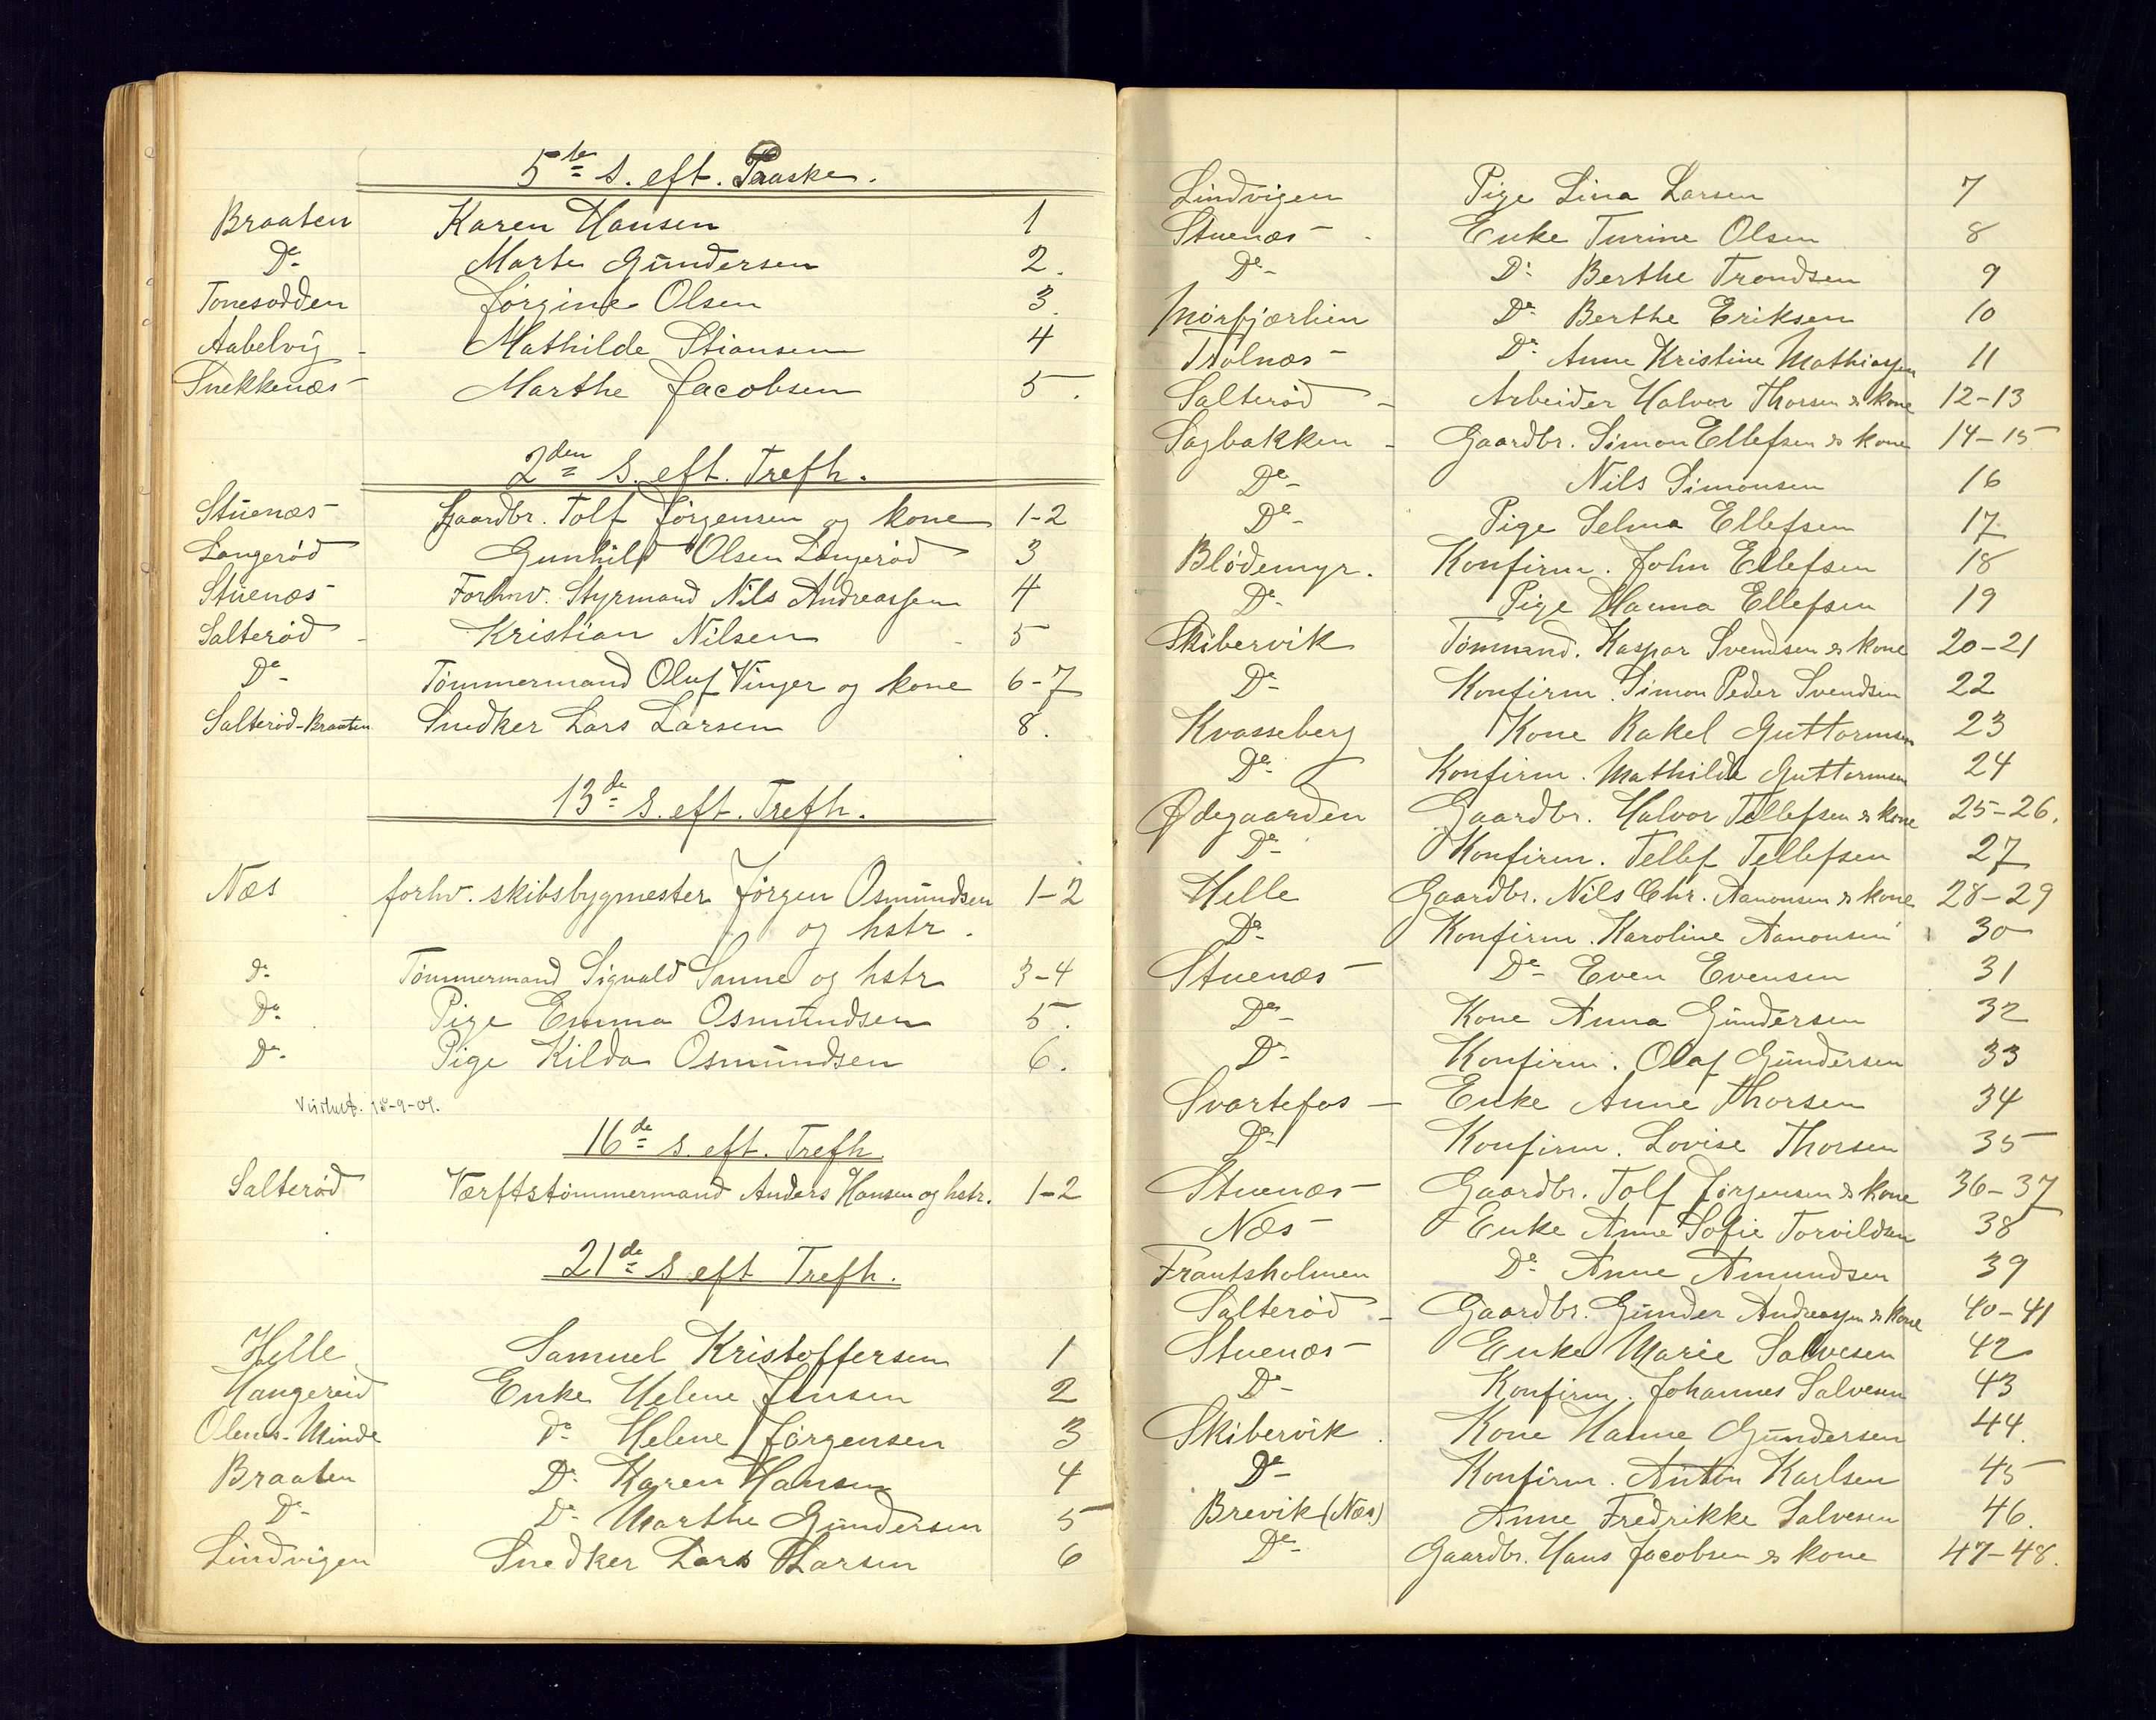 5te S. eft. Paaske.
Braaten Karen Hansen 1
Do Marte Gundersen 2.
Tonesodden Jørgine Olsen 3.
Aabelvig - Mathilde Stiansen 4
Snekkenæs - Marthe Jacobsen 5.
2den S. eft. Trefh.
Stuenæs - Gaardbr. Tolf Jørgensen og kone 1-2
Langerød Gunhild Olsen Langerød 3
Stuenæs - Forhnv. Styrmand Nils Andreassen 4
Salterød - Kristian Nilsen - 5
Do Tømmermand Oluf Vinger og kone 6-7
Salterød-Braaten Snedker Lars Larsen 8.
13de S. eft. Trefh.
Næs forhv. skibsbygmester Jörgen Osmundsen 1-2
og hstr.
do Tømmermand Sigvald Sanne og hstr 3-4
Do. Pige Emma Osmundsen 5.
Do Pige Hilda Osmundsen 6.
15-9-01.
16de S. eft. Trefh.
Salterød Værftstømmermand Anders Hansen og hstr. 1-2
21de S eft Trefh.
Helle Samuel Kristoffersen 1
Hangereid Enke Helene Jensen 2
Olens-Minde Do Helene Jørgensen 3
Braaten Do Karen Hansen 4
Do Do Marthe Gundersen 5
Lindvigen Snedker Lars Larsen 6
Lindvigen Pige Lina Larsen 7
Stuenæs - Enke Turine Olsen 8
Do Do Berthe Trondsen 9
Mørfjærlien Do Berthe Eriksen 10
Trolnæs - Do Anne Kristine Mathiassen 11
Salterød - Arbeider Halvor Thorsen & kone 12-13
Sagbakken - Gaardbr. Simon Ellefsen & kone 14-15
Do Nils Simonsen 16
Do Pige Selma Ellefsen 17
Blødemyr. Konfirm. John Ellefsen 18
Do Pige Hanna Ellefsen 19
Skibervik Tømmand. Kaspar Svendsen & kone 20-21
Do Konfirm. Simon Peder Svendsen 22
Kvasseberg Kone Rakel Guttormsen 23
Do Konfirm. Mathilde Guttormsen 24
Ødegaarden Gaardbr. Halvor Tellefsen & kone 25-26.
Do Konfirm. Tellef Tellefsen 27
Helle Gaardbr. Nils Chr. Aanonsen & kone 28-29
Do Konfirm. Karoline Aanonsen 30
Stuenæs - Do Even Evensen 31
Do Kone Anna Gundersen 32
Do Konfirm. Olaf Gundersen 33
Svartefos - Enke Anne Thorsen 34
Do Konfirm. Lovise Thorsen 35
Stuenæs - Gaardbr. Tolf Jørgensen & kone 36-37
Næs - Enke Anne Sofie Torvildsen 38
Frantsholmen Do Anne Amundsen 39
Salterød - Gaardbr. Gunder Andreassen & kone 40-41
Stuenæs - Enke Marie Salvesen 42
Do Konfirm. Johannes Salvesen 43
Skibervik. Kone Hanne Gundersen 44.
Do Konfirm. Anton Karlsen 45
Brevik (Næs) Anne Fredrikke Salvesen 46.
Do Gaardbr. Hans Jacobsen & kone 47-48.